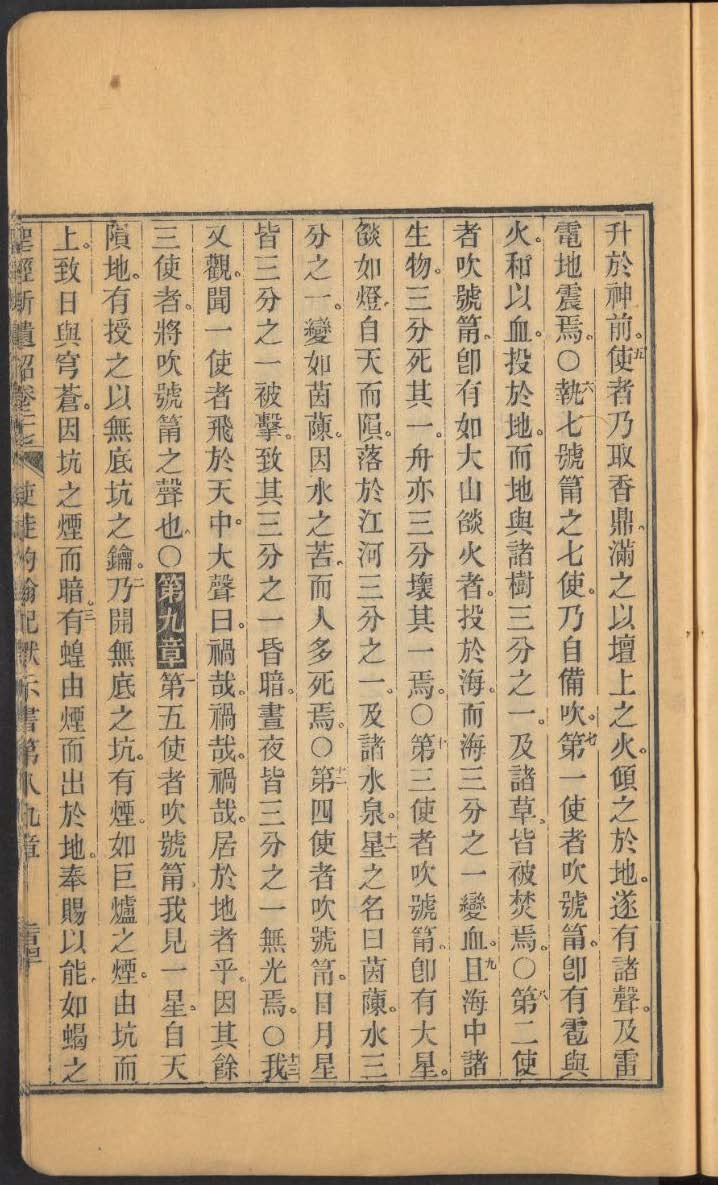 升於神前。五使者乃取香鼎、滿之以壇上之火。傾之於地。遂有諸聲。及雷
電地震焉。〇六執七號筩之七使。乃自備吹。七第一使者吹號筩。卽有雹與
火。和以血。投於地。而地與諸樹三分之一。及諸草、皆被焚焉。〇八第二使
者吹號筩、卽有如大山燄火者。投於海。而海三分之一變血。九且海中諸
生物。三分死其一。舟亦三分壞其一焉。〇十第三使者吹號筩。卽有大星。
燄如燈、自天而隕。落於江河三分之一。及諸水泉。十一星之名曰茵蔯。水三
分之一。變如茵蔯。因水之苦。而人多死焉。〇十二第四使者吹號筩。日月星
皆三分之一被擊。致其三分之一昏暗。晝夜皆三分之一無光焉。〇十三我
又觀。聞一使者飛於天中。大聲曰。禍哉。禍哉。禍哉。居於地者乎。因其餘
三使者。將吹號筩之聲也。〇第九章一第五使者吹號筩、我見一星。自天
隕地。有授之以無底坑之鑰。二乃開無底之坑。有煙。如巨爐之煙。由坑而
上。致日與穹蒼。因坑之煙而暗。三有蝗由煙而出於地。奉賜以能、如蝎之
聖經新遺詔卷二十七 使徒約翰記默示書第八九章